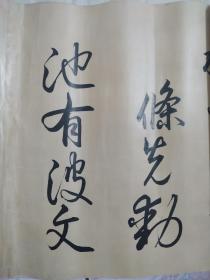 條先動
池有波文